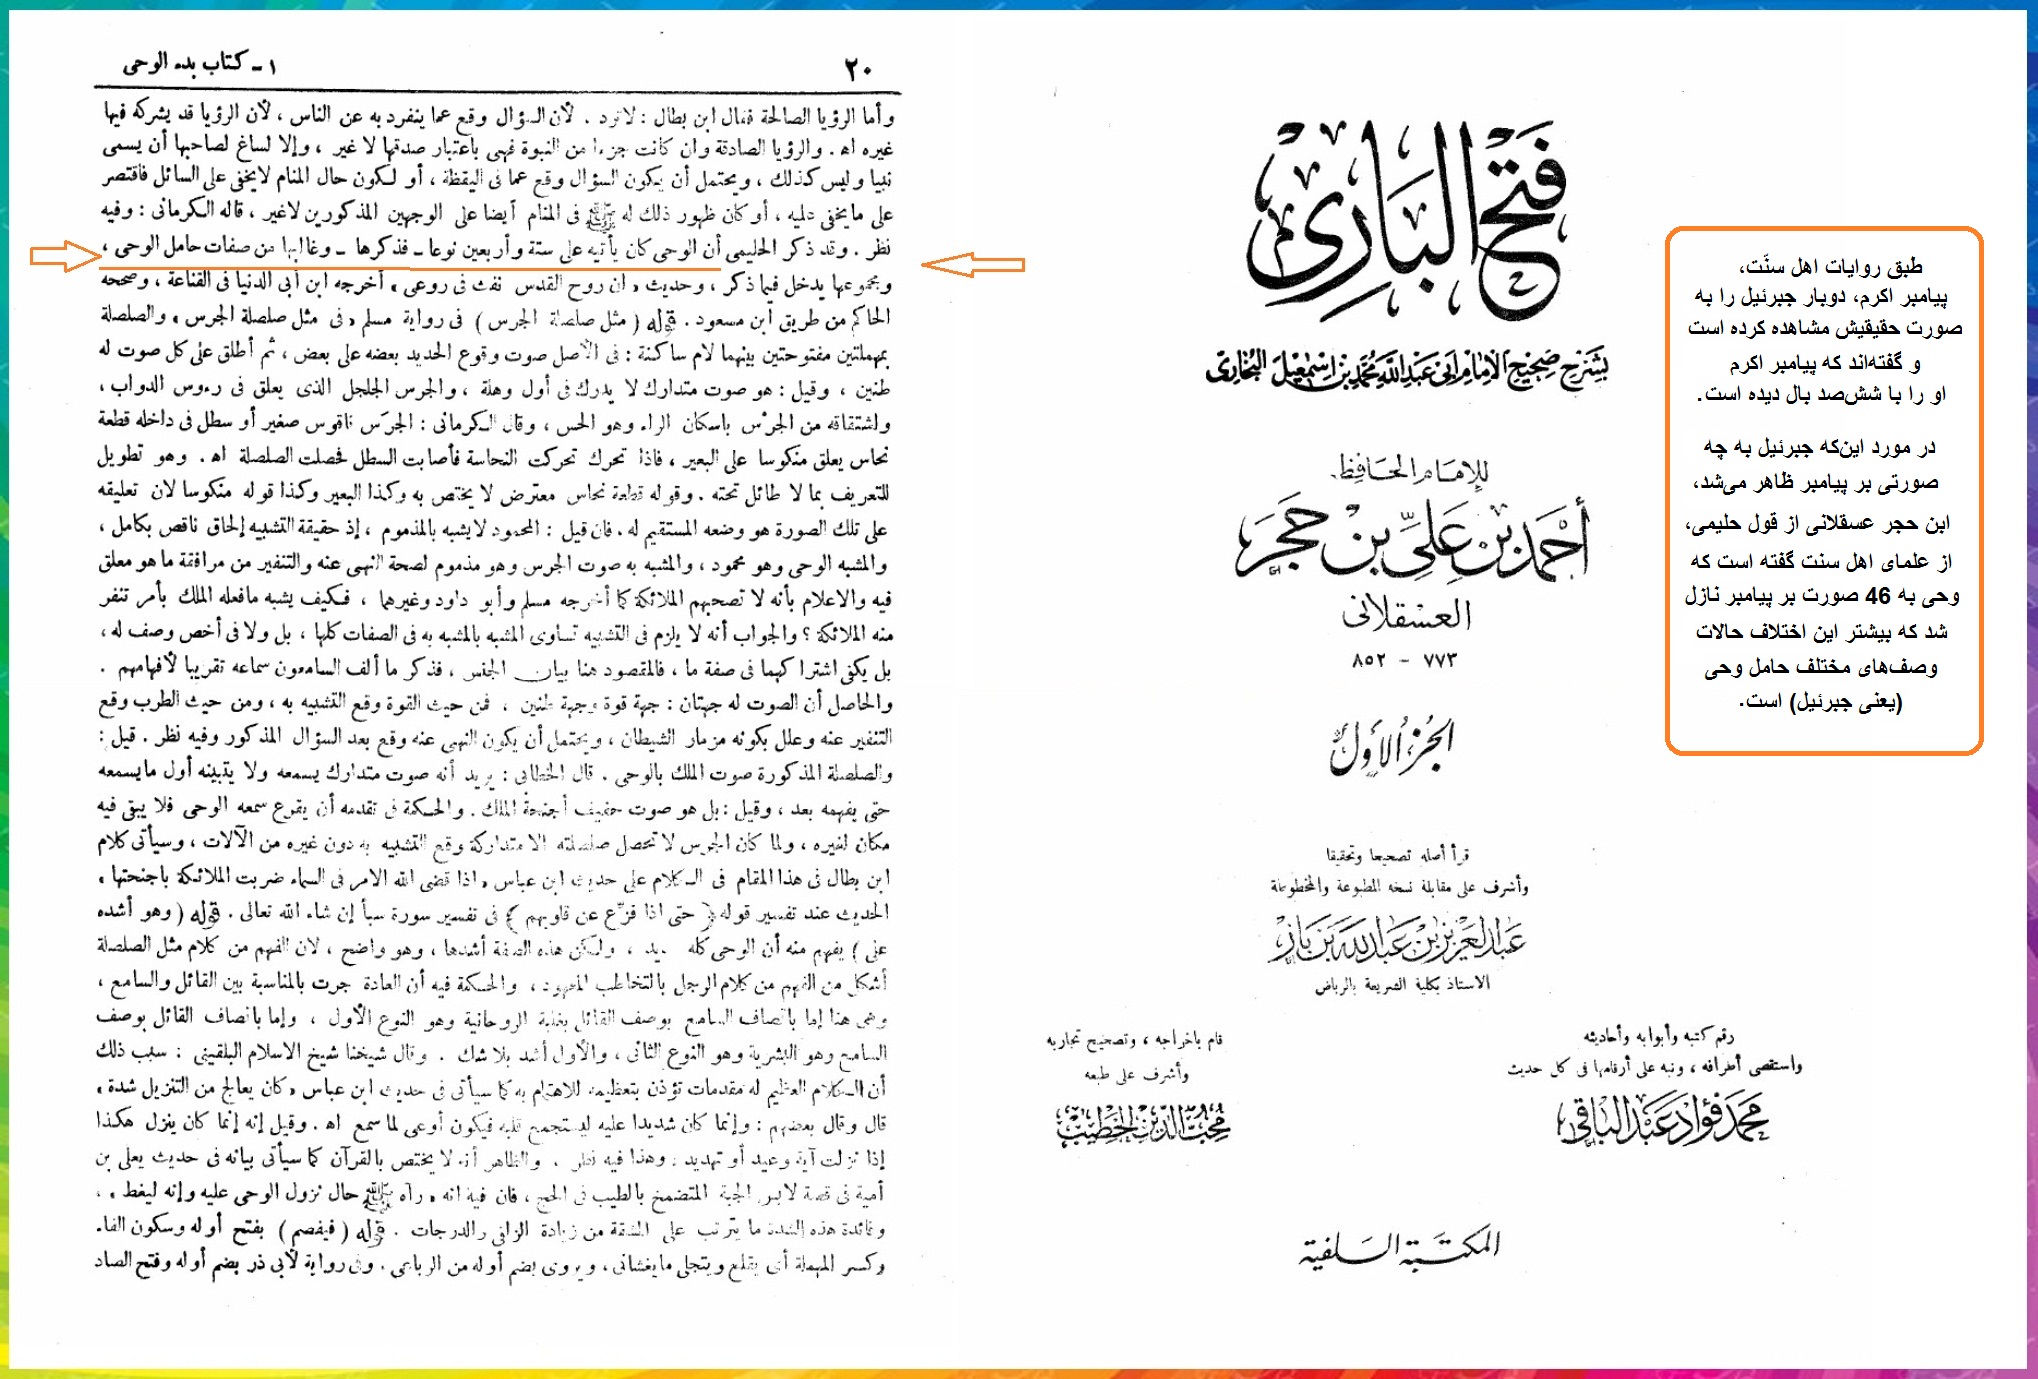 فتح البارى
بشرح صحيح الإمام أبى عبد الله محمد بن إسمعيل البخارى
للإمام الحافظ
أحمد بن على بن حجر
العسقلانى
٧٧٣ - ٨٥٢
الجزء الأول
قرأ أصله تصحيحا وتحقيقا
وأشرف على مقابلة نسخه المطبوعة والمخطوطة
عبد العزيز بن عبد الله بن باز
الاستاذ بكلية الشريعة بالرياض
رقم كتبه وأبوابه وأحاديثه
واستقصى أطرافه ، ونبه على أرقامها فى كل حديث
محمد فؤاد عبد الباقى
قام باخراجه ، وتصحيح تجاربه
وأشرف على طبعه
محب الدين الخطيب
المكتبة السلفية
طبق روایات اهل سنّت،
پیامبر اکرم، دوبار جبرئیل را به
صورت حقیقیش مشاهده کرده است
و گفته‌اند که پیامبر اکرم
او را با شش‌صد بال دیده است.
در مورد این‌که جبرئیل به چه
صورتی بر پیامبر ظاهر می‌شد،
ابن حجر عسقلانی از قول حلیمی،
از علمای اهل سنت گفته است که
وحی به 46 صورت بر پیامبر نازل
شد که بیشتر این اختلاف حالات
وصف‌های مختلف حامل وحی
(یعنی جبرئیل) است.
٢٠
١ - كتاب بدء الوحى
وأما الرؤيا الصالحة فقال ابن بطال : لا ترد . لأن السؤال وقع عما ينفرد به عن الناس ، لأن الرؤيا قد يشركه فيها
غيره اهـ . والرؤيا الصادقة وان كانت جزءا من النبوة فهى باعتبار صدقها لا غير ، وإلا لساغ لصاحبها أن يسمى
نبيا وليس كذلك ، ويحتمل أن يكون السؤال وقع عما فى اليقظة ، أو لكون حال المنام لا يخفى على السائل فاقتصر
على ما يخفى عليه ، أو كان ظهور ذلك له ﷺ فى المنام أيضا على الوجهين المذكورين لا غير ، قاله الكرمانى : وفيه
نظر . وقد ذكر الحليمى أن الوحى كان يأتيه على ستة وأربعين نوعا ـ فذكرها ـ وغالبها من صفات حامل الوحى ،
ومجموعها يدخل فيما ذكر ، وحديث « ان روح القدس نفث فى روعى » أخرجه ابن أبى الدنيا فى القناعة ، وصححه
الحاكم من طريق ابن مسعود . قوله ( مثل صلصلة الجرس ) فى رواية مسلم « فى مثل صلصلة الجرس » والصلصلة
بمهملتين مفتوحتين بينهما لام ساكنة : فى الأصل صوت وقوع الحديد بعضه على بعض ، ثم أطلق على كل صوت له
طنين ، وقيل : هو صوت متدارك لا يدرك فى أول وهلة ، والجرس الجلجل الذى يعلق فى رءوس الدواب ،
واشتقاقه من الجرْس باسكان الراء وهو الحس ، وقال الكرمانى : الجرَس ناقوس صغير أو سطل فى داخله قطعة
نحاس يعلق منكوسا على البعير ، فاذا تحرك تحركت النحاسة فأصابت السطل فحصلت الصلصلة اهـ . وهو تطويل
للتعريف بما لا طائل تحته . وقوله قطعة نحاس معترض لا يختص به وكذا البعير وكذا قوله منكوسا لان تعليقه
على تلك الصورة هو وضعه المستقيم له . فان قيل : المحمود لا يشبه بالمذموم ، إذ حقيقة التشبيه إلحاق ناقص بكامل ،
والمشبه الوحى وهو محمود ، والمشبه به صوت الجرس وهو مذموم لصحة النهى عنه والتنفير من مرافقة ما هو معلق
فيه والاعلام بأنه لا تصحبهم الملائكة كما أخرجه مسلم وأبو داود وغيرهما ، فكيف يشبه مافعله الملك بأمر تنفر
منه الملائكة ؟ والجواب أنه لا يلزم فى التشبيه تساوى المشبه بالمشبه به فى الصفات كلها ، بل ولا فى أخص وصف له ،
بل يكفى اشتراكهما فى صفة ما ، فالمقصود هنا بيان الجنس ، فذكر ما ألف السامعون سماعه تقريبا لأفهامهم .
والحاصل أن الصوت له جهتان : جهة قوة وجهة طنين ، فمن حيث القوة وقع التشبيه به ، ومن حيث الطرب وقع
التنفير عنه وعلل بكونه مزمار الشيطان ، ويحتمل أن يكون النهى عنه وقع بعد السؤال المذكور وفيه نظر . قيل :
والصلصلة المذكورة صوت الملك بالوحى . قال الخطابى : يريد أنه صوت متدارك يسمعه ولا يتبينه أول ما يسمعه
حتى يفهمه بعد ، وقيل : بل هو صوت حفيف أجنحة الملك . والحكمة فى تقدمه أن يقرع سمعه الوحى فلا يبقى فيه
مكان لغيره ، ولما كان الجرس لا تحصل صلصلته الا متداركة وقع التشبيه به دون غيره من الآلات ، وسيأتى كلام
ابن بطال فى هذا المقام فى الكلام على حديث ابن عباس « اذا قضى الله الامر فى السماء ضربت الملائكة باجنحتها »
الحديث عند تفسير قوله ﴿ حتى اذا فزّع عن قلوبهم ﴾ فى تفسير سورة سبأ إن شاء الله تعالى . قوله ( وهو أشده
على ) يفهم منه أن الوحى كله يد ، ولكن هذه الصفة أشدها ، وهو واضح ، لان الفهم من كلام مثل الصلصلة
أشكل من الفهم من كلام الرجل بالتخاطب المعهود ، والحكمة فيه أن العادة جرت بالمناسبة بين القائل والسامع ،
وهى هنا إما باتصاف السامع بوصف القائل بغلبة الروحانية وهو النوع الأول ، وإما باتصاف القائل بوصف
السامع وهو البشرية وهو النوع الثانى ، والأول أشد بلا شك . وقال شيخنا شيخ الاسلام البلقينى : سبب ذلك
أن الكلام العظيم له مقدمات تؤذن بتعظيمه للاهتمام به كما سيأتى فى حديث ابن عباس « كان يعالج من التنزيل شدة »
قال وقال بعضهم : وإنما كان شديدا عليه ليستجمع قلبه فيكون أوعى لما سمع اهـ . وقيل إنه إنما كان ينزل هكذا
إذا نزلت آية وعيد أو تهديد ، وهذا فيه نظر . والظاهر أنه لا يختص بالقرآن كما سيأتى بيانه فى حديث يعلى بن
أمية فى قصة لابس الجبة المتضمخ بالطيب فى الحج ، فان فيه انه « رآه ﷺ حال نزول الوحى عليه وإنه ليغط » ،
وفائدة هذه الشدة ما يترتب على المشقة من زيادة الزلفى والدرجات . قوله ( فيفصم ) بفتح أوله وسكون الفاء
وكسر المهملة أى يقلع ويتجلى ما يغشانى ، ويروى بضم أوله من الرباعى . وفى رواية لأبى ذر بضم أوله وفتح الصاد